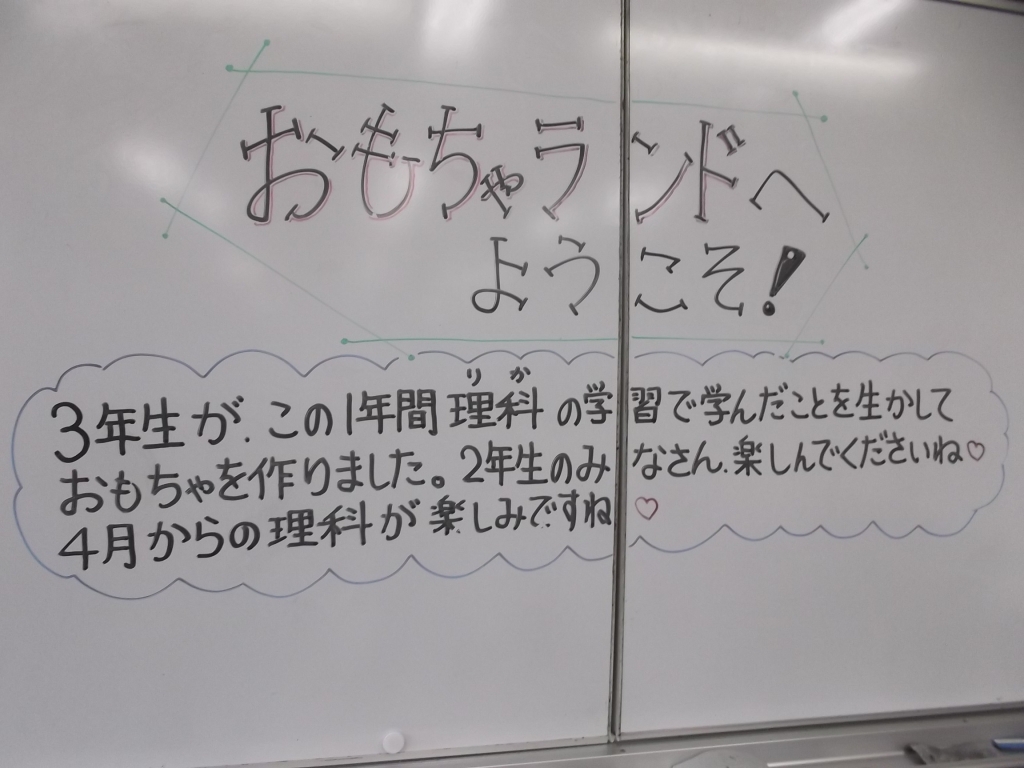 おもちゃランドへ
ようこそ!
りか
3年生が、この1年間理科の学習で学んだことを生かして
おもちゃを作りました。2年生のみなさん、楽しんでくださいね♡
4月からの理科が楽しみですね♡